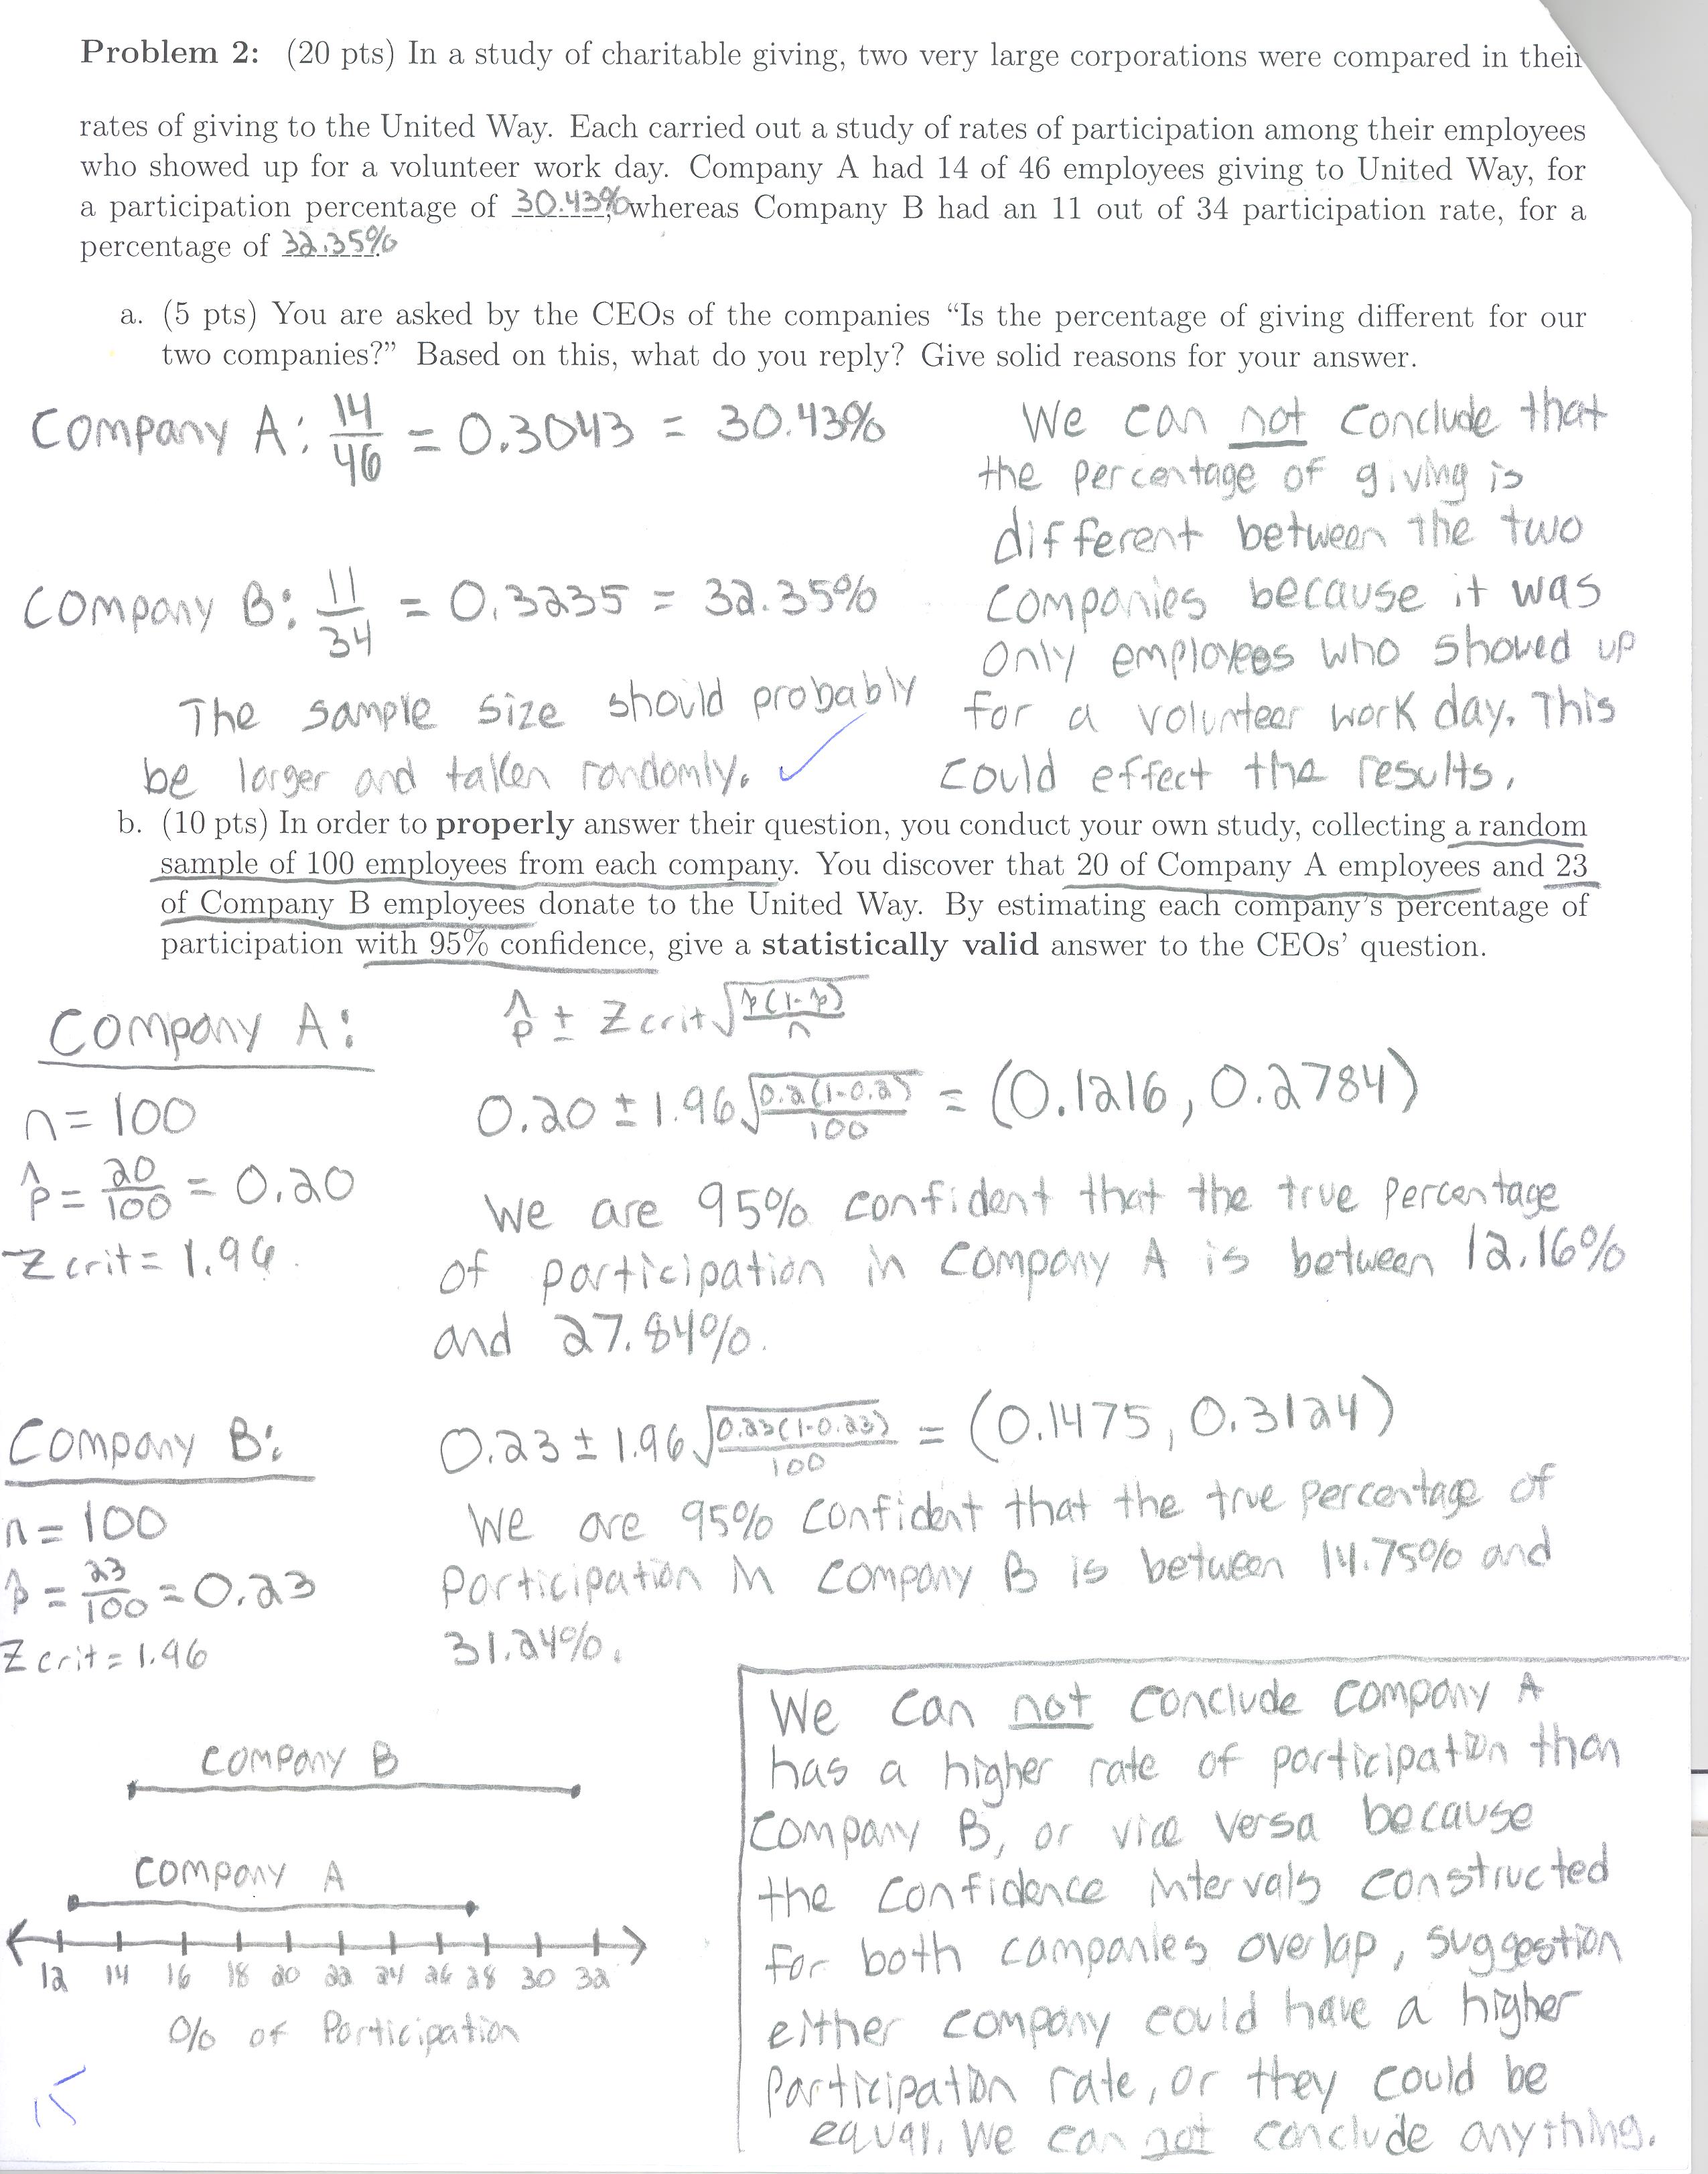 Problem 2: (20 pts) In a study of charitable giving, two very large corporations were compared in their
rates of giving to the United Way. Each carried out a study of rates of participation among their employees
who showed up for a volunteer work day. Company A had 14 of 46 employees giving to United Way, for
a participation percentage of 30.43%, whereas Company B had an 11 out of 34 participation rate, for a
percentage of 32.35%.
a. (5 pts) You are asked by the CEOs of the companies "Is the percentage of giving different for our
two companies?" Based on this, what do you reply? Give solid reasons for your answer.
Company A: 14/46 = 0.3043 = 30.43%
Company B: 11/34 = 0.3235 = 32.35%
The sample size should probably
be larger and taken randomly. ✓
We can not conclude that
the percentage of giving is
different between the two
companies because it was
only employees who showed up
for a volunteer work day. This
could effect the results.
b. (10 pts) In order to properly answer their question, you conduct your own study, collecting a random
sample of 100 employees from each company. You discover that 20 of Company A employees and 23
of Company B employees donate to the United Way. By estimating each company's percentage of
participation with 95% confidence, give a statistically valid answer to the CEOs' question.
Company A:
n = 100
p̂ = 20/100 = 0.20
Z crit = 1.96
p̂ ± Z crit √(p̂(1-p̂)/n)
0.20 ± 1.96 √(0.2(1-0.2)/100) = (0.1216, 0.2784)
We are 95% confident that the true percentage
of participation in company A is between 12.16%
and 27.84%.
Company B:
n = 100
p̂ = 23/100 = 0.23
Z crit = 1.96
0.23 ± 1.96 √(0.23(1-0.23)/100) = (0.1475, 0.3124)
We are 95% confident that the true percentage of
participation in company B is between 14.75% and
31.24%.
Company B
Company A
12 14 16 18 20 22 24 26 28 30 32
% of Participation
15
We can not conclude company A
has a higher rate of participation than
company B, or vice versa because
the confidence intervals constructed
for both companies overlap, suggestion
either company could have a higher
participation rate, or they could be
equal. We can not conclude anything.